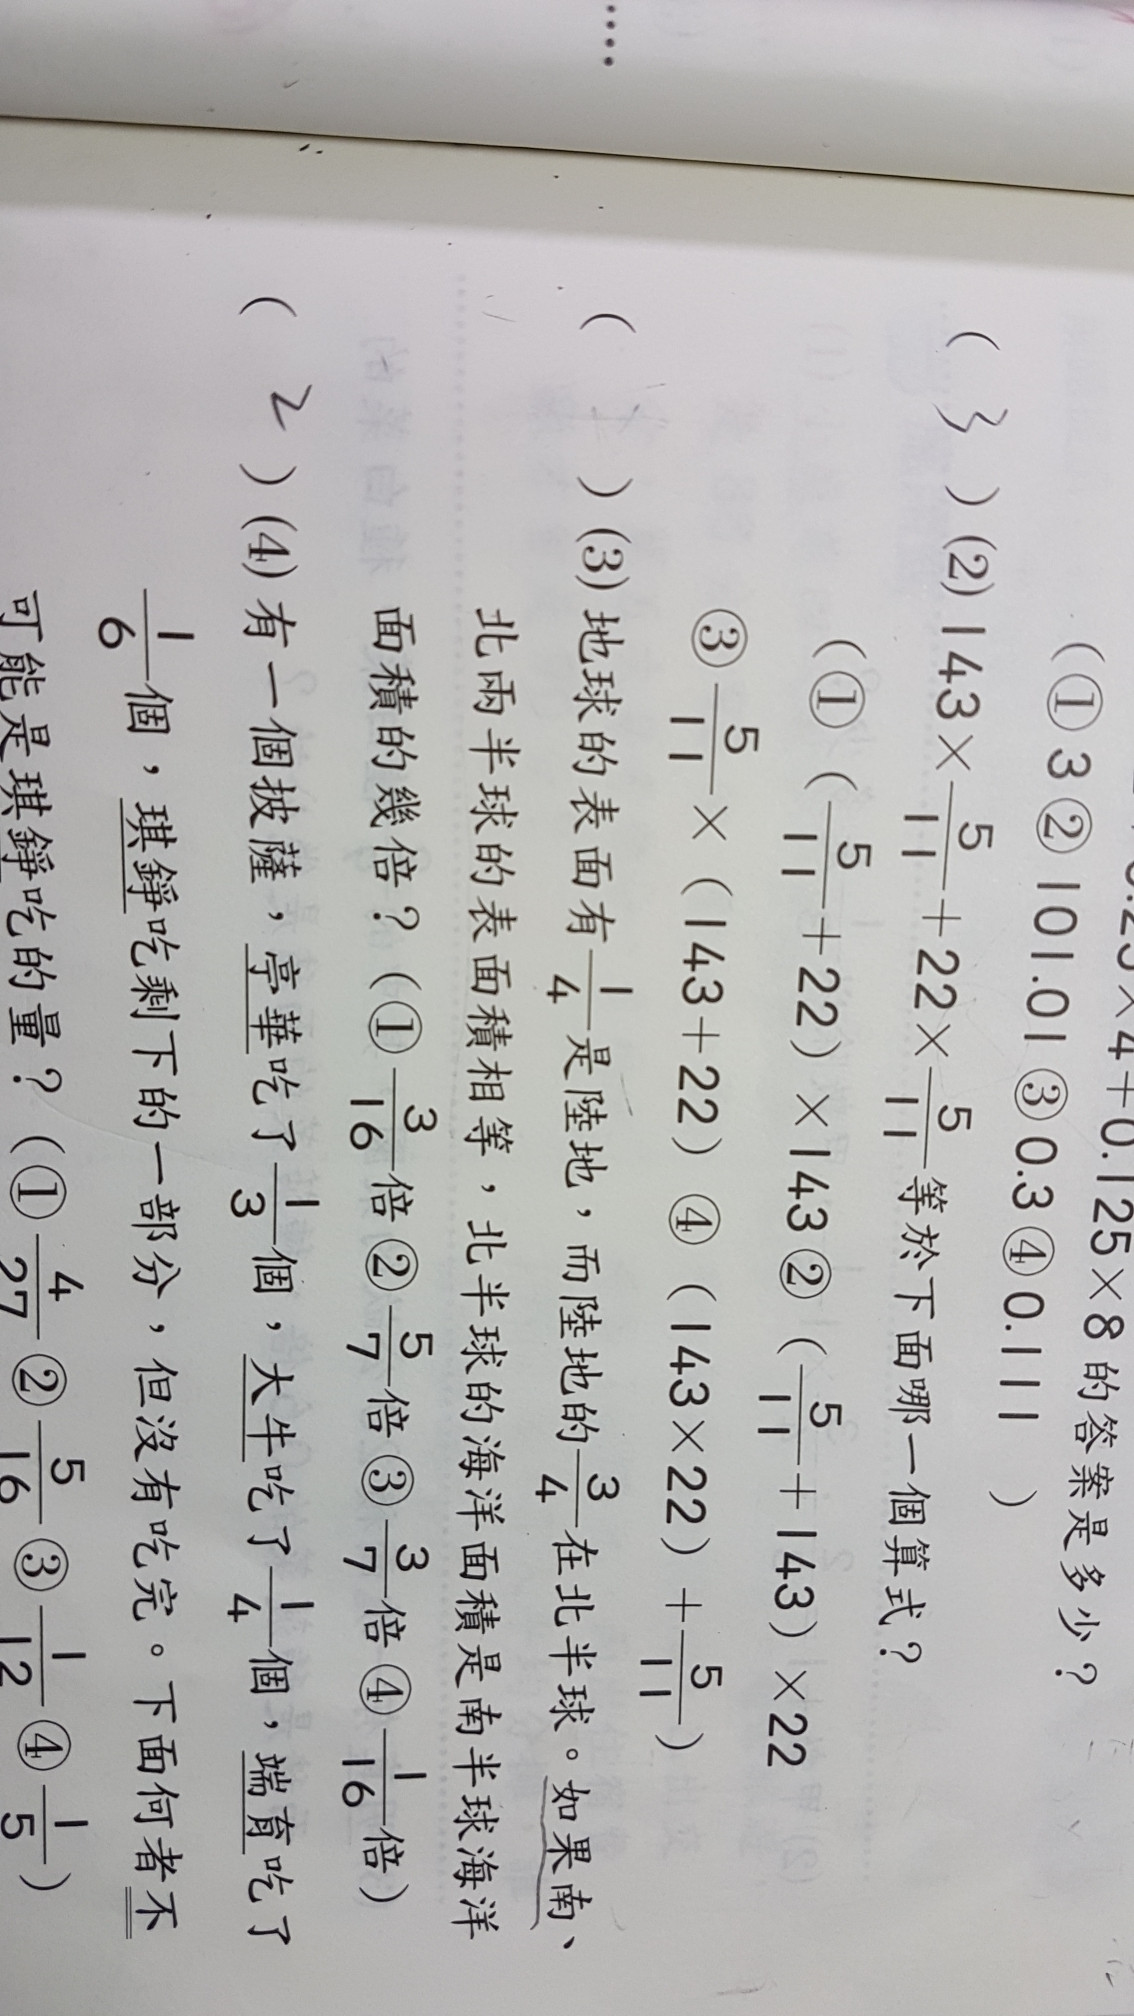 0.25×4+0.125×8的答案是多少？
（①3②101.01③0.3④0.111 ）
（ 3 ）(2) 143×5/11+22×5/11等於下面哪一個算式？
（①（5/11+22）×143②（5/11+143）×22
③5/11×（143+22）④（143×22）+5/11）
（ ）(3)地球的表面有1/4是陸地，而陸地的3/4在北半球。如果南、
北兩半球的表面積相等，北半球的海洋面積是南半球海洋
面積的幾倍？（①3/16倍②5/7倍③3/7倍④1/16倍）
（ 2 ）(4)有一個披薩，亭華吃了1/3個，大牛吃了1/4個，端育吃了
1/6個，琪錚吃剩下的一部分，但沒有吃完。下面何者不
可能是琪錚吃的量？（①4/27②5/16③1/12④1/5）